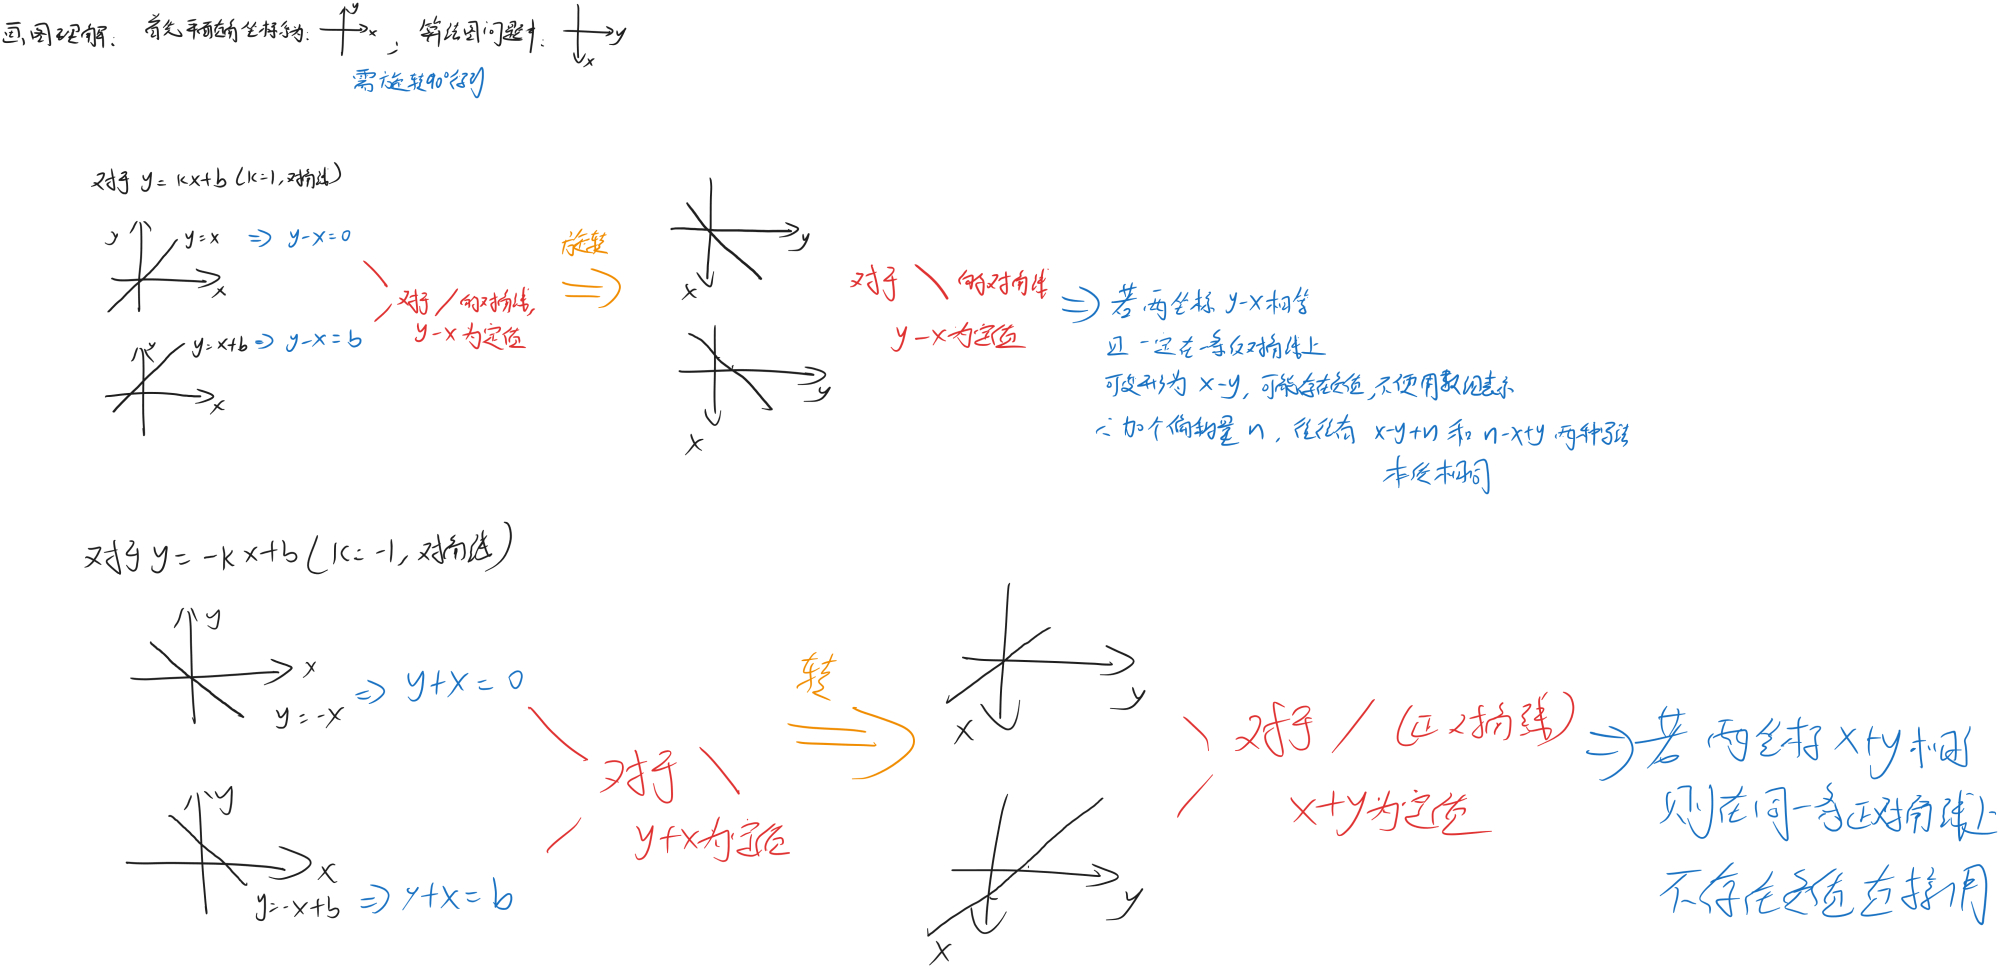 画图理解: 首先平面直角坐标系为: y x , 算法图问题中: y x
需旋转90°得到
对于 y = kx+b (k=1, 对角线)
y x y=x ⇒ y-x=0
y x y=x+b ⇒ y-x=b
对于 / 的对角线,
y-x为定值
旋转
y x
y x
对于 \ 的对角线
y-x为定值
⇒ 若两坐标 y-x相等
一定在一条反对角线上
可变形为 x-y, 可能存在负值, 不便用数组表示
∴ 加个偏移量 n, 往往有 x-y+n 和 n-x+y 两种写法
本质相同
对于 y = -kx+b (k=-1, 对角线)
y x y=-x ⇒ y+x=0
y x y=-x+b ⇒ y+x=b
对于 \
y+x为定值
转
y x
y x
对于 / (正对角线)
x+y为定值
⇒ 若两坐标 x+y相同
则在同一条正对角线上
不存在负值直接用